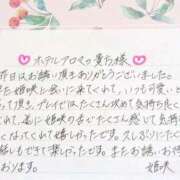 ホテルアロマの貴方様
昨日はお誘い頂きありがとうございました。
また姫咲に会いに来てくれて、いつも可愛い
って頂き、プレイではたくさん攻めて気持ち良く
してくれて、姫咲もたくさん感じて気持ち
なってくれて嬉しかったです。久しぶりにた
話しもできて楽しかったです。またお誘いお待
おります。
姫咲